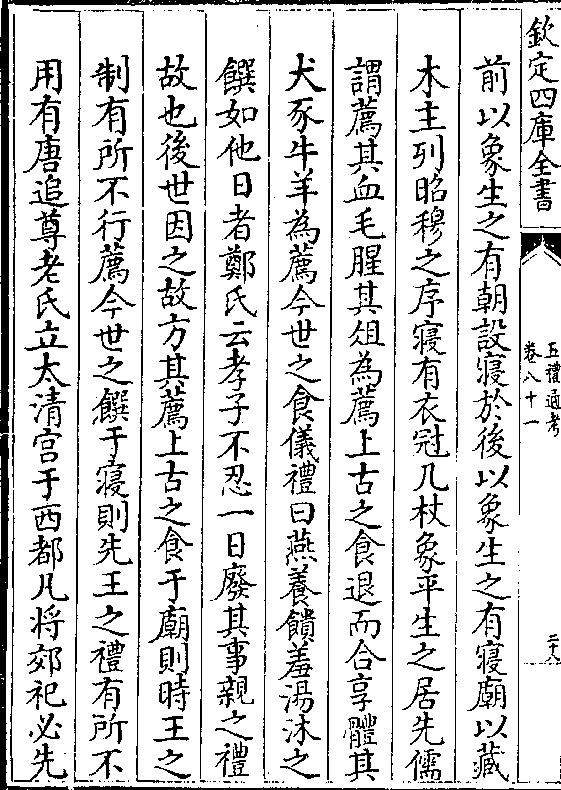 欽定四庫全書
五禮通考
卷八十一
二十八
前以象生之有朝設寢於後以象生之有寢廟以藏
木主列昭穆之序寢有衣冠几杖象平生之居先儒
謂薦其血毛腥其俎為薦上古之食退而合享體其
犬豕牛羊為薦今世之食儀禮曰燕養饋羞湯沐之
饌如他日者鄭氏云孝子不忍一日廢其事親之禮
故也後世因之故方其薦上古之食于廟則時王之
制有所不行薦今世之饌于寢則先王之禮有所不
用有唐追尊老氏立太清宫于西都凡將郊祀必先